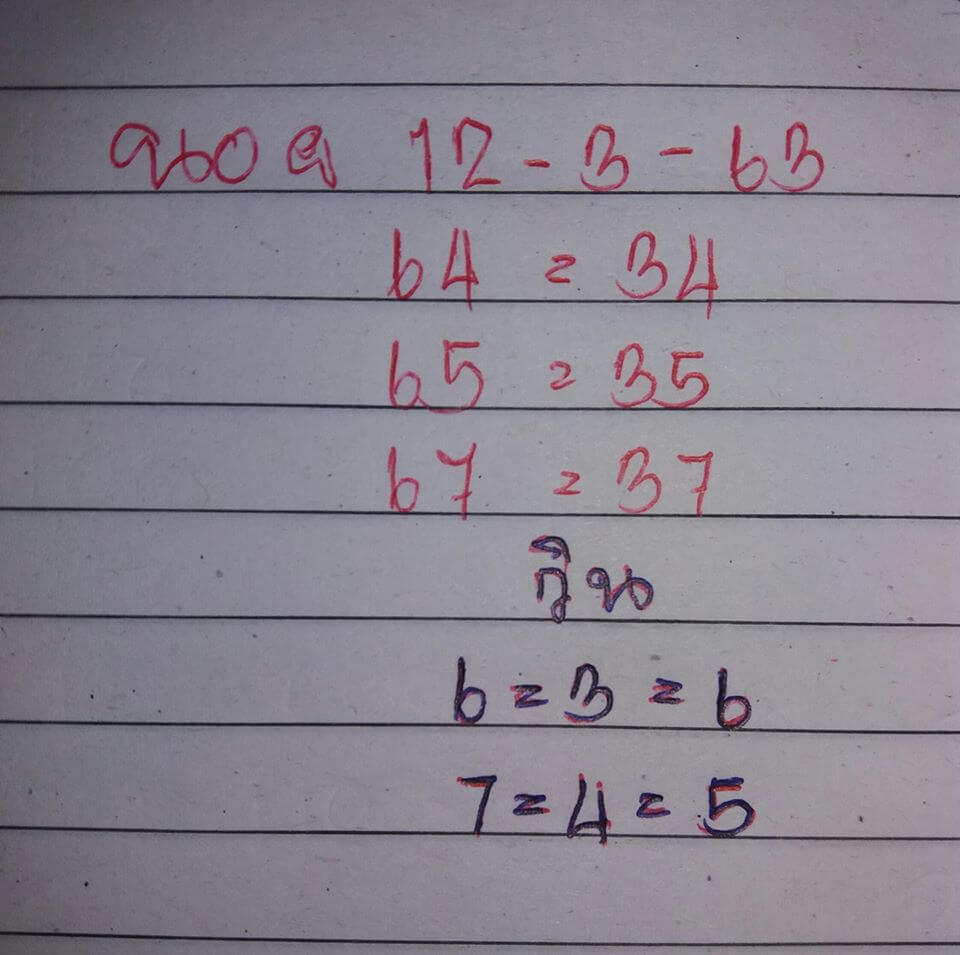 12 - 3 - 63
64 = 34
65 = 35
67 = 37
วิน
6 = 3 = 6
7 = 4 = 5